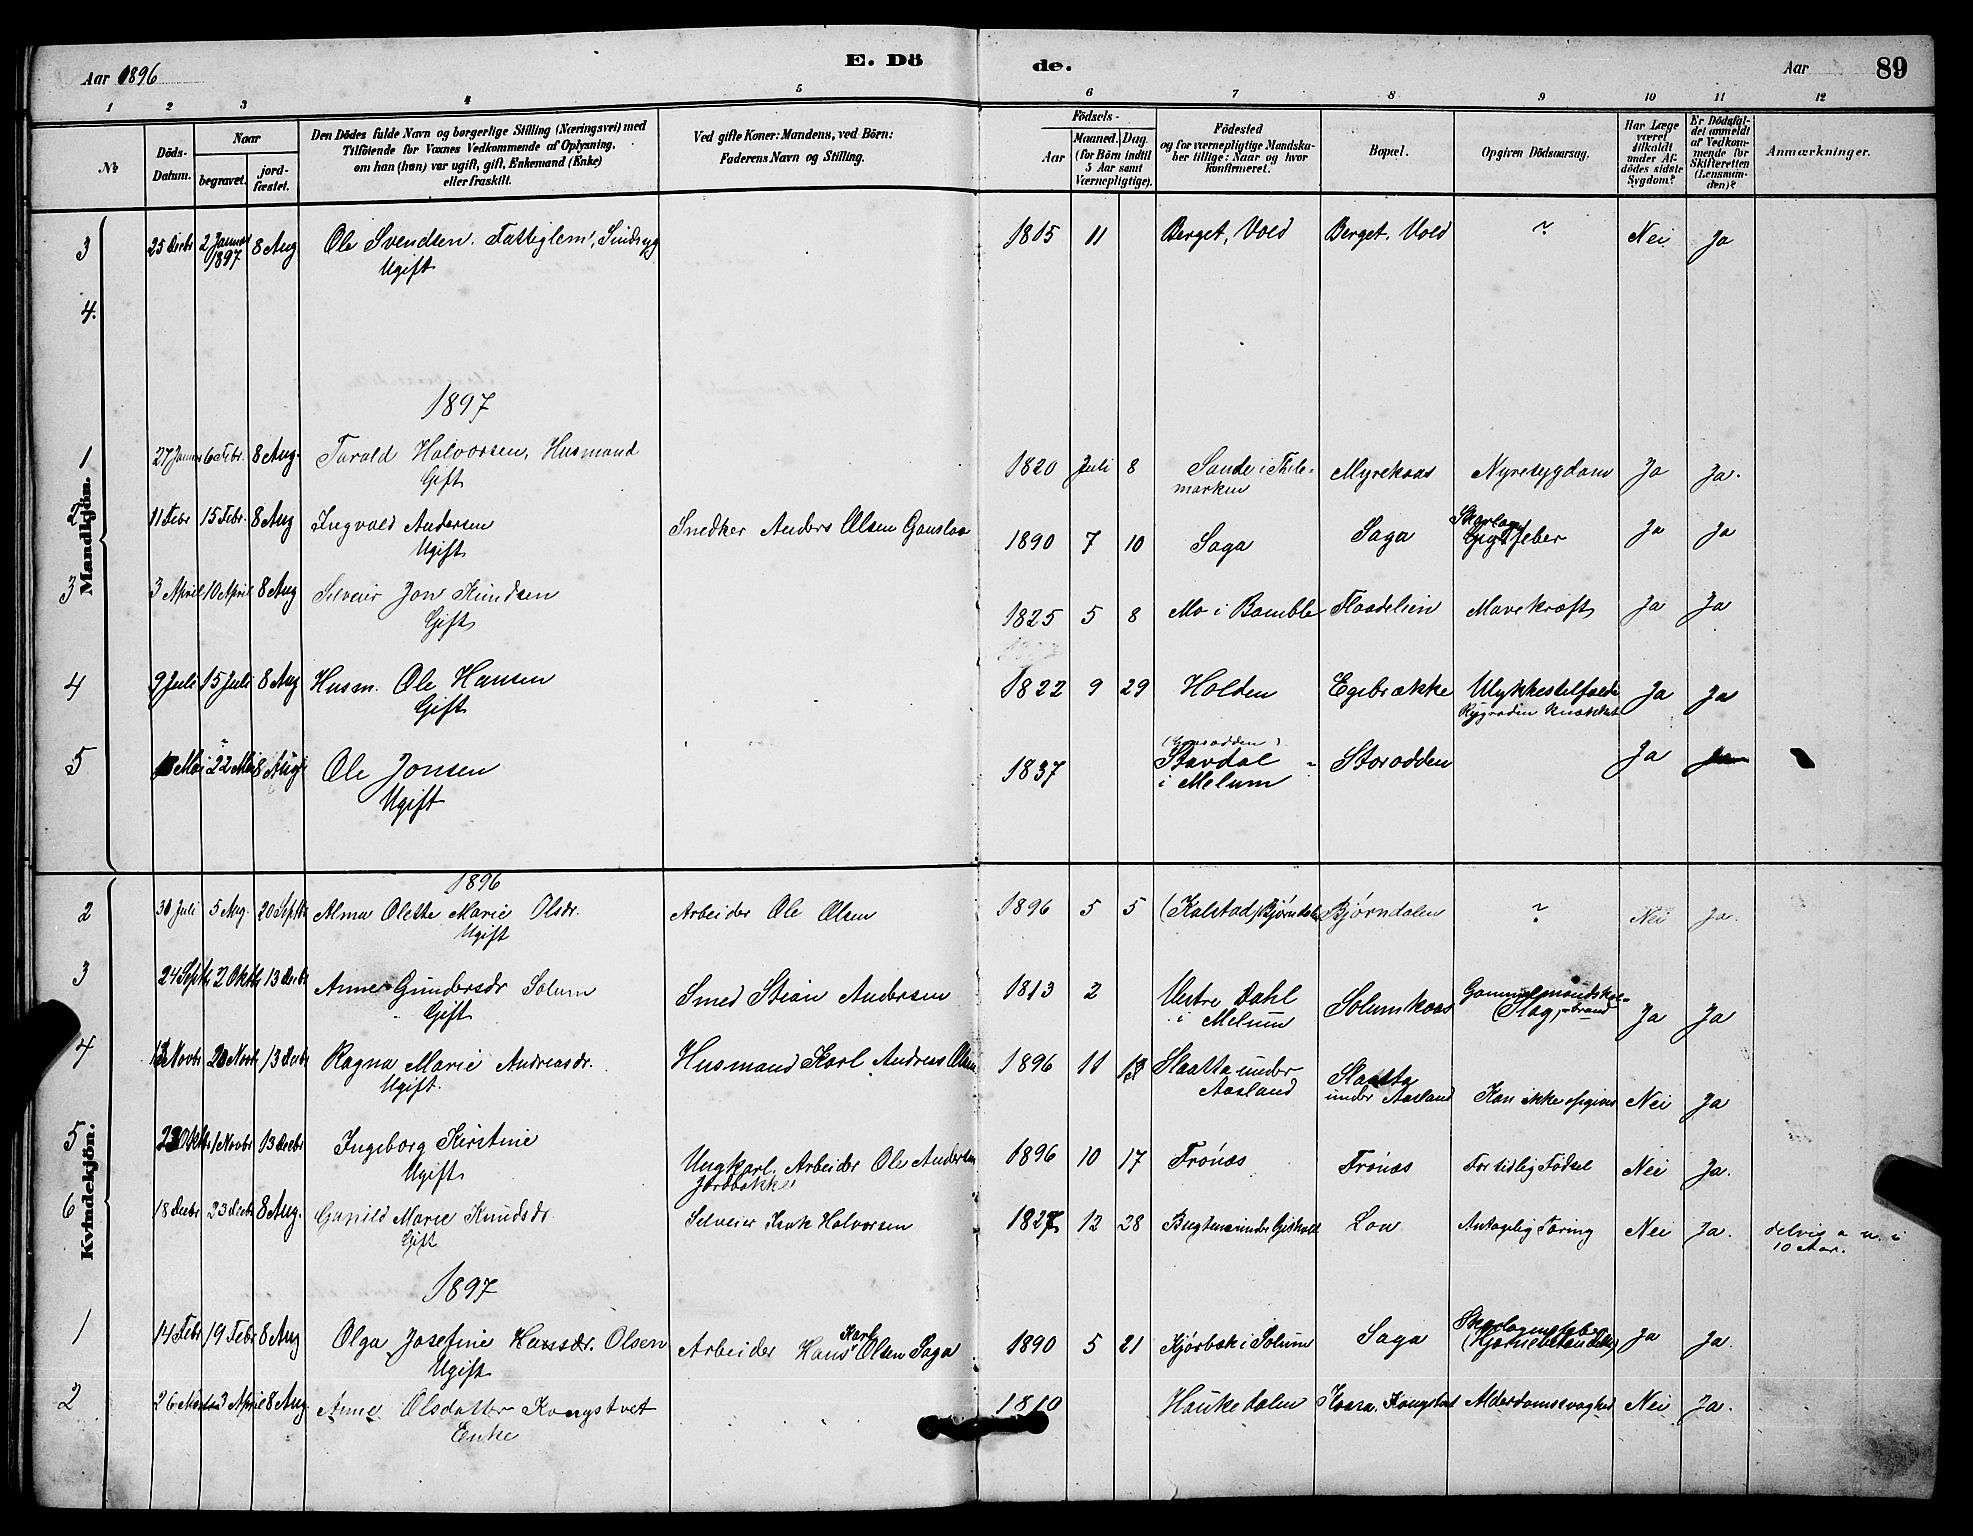 Aar 1896
E. Dö
de.
Aar
89
1 2 3 4 5 6 7 8 9 10 11 12
No
Döds-
Datum.
Naar
begravet.
jord-
fæstet.
Den Dödes fulde Navn og borgerlige Stilling (Næringsvei) med
Tilföiende for Voxnes Vedkommende af Oplysning,
om han (hun) var ugift, gift, Enkemand (Enke)
eller fraskilt.
Ved gifte Koner: Mandens, ved Börn:
Faderens Navn og Stilling.
Födsels-
Aar
Maaned. Dag.
(for Börn indtil
5 Aar samt
Værnepligtige).
Födested
og for værnepligtige Mandska-
ber tillige: Naar og hvor
konfirmeret.
Bopæl.
Opgiven Dödsaarsag.
Har Læge
været
tilkaldt
under Af-
dödes sidste
Sygdom?
Er Dödsfal-
det anmeldt
af Vedkom-
mende for
Skifteretten
(Lensman-
den)?
Anmærkninger.
Mandkjön.
3 25 Decbr 2 Januar 1897 8 Aug Ole Svendsen. Fattiglem, Sindssyg 1815 11 Berget, Vold Berget, Vold ? Nei Ja
Ugift
4.
1897
1 27 Januar 6 Febr. 8 Aug. Tarald Halvorsen, Husmand 1820 Juli 8 Sande i Thile- Myrekaas Nyresygdom Ja Ja.
Gift marken
2 11 Febr 15 Febr. 8 Aug Ingvald Andersen Snedker Anders Olsen 1890 7 10 Saga Saga Ja Ja
Ugift
3 3 April 10 April 8 Aug Selveier Jon Knudsen 1825 5 8 Mo i Bamble Flaadelien Mavekræft Ja Ja
Gift
4 9 Juli 15 Juli 8 Aug Husm. Ole Hansen 1822 9 29 Holden Egebrække Ulykkestilfælde Ja Ja
Gift Rygraden knækket
5 Mai 22 Mai 8 Aug Ole Jonsen 1837 Stavdal Storodden Ja Ja
Ugift i Melum
Kvindekjön.
1896
2 30 Juli 5 Aug. 20 Septbr Alma Olette Marie Olsdr. Arbeider Ole Olsen 1896 5 5 (Kalstad) Bjørndalen Bjørndalen ? Nei Ja.
Ugift
3 24 Septbr 2 Oktb 13 Decbr Anne Gundersdr Solum Smed Stian Andersen 1813 2 Vestre Dahl Solumkaas Gammelmandskol- Ja Ja
Gift i Melum (Slag, -brand
4 Novbr Novb 13 Decbr Ragna Marie Andreasdr. Husmand Karl Andreas Olsen 1896 11 13 Slaatta under Slaatta Kan ikke opgives Nei Ja
Ugift. Aasland under Aasland
5 Oktbr 1 Novbr 13 Decbr Ingeborg Kirstine Ungkarl. Arbeider Ole Andersen 1896 10 17 Frónæs Frónæs For tidlig Fødsel Nei Ja.
Ugift Jordbakken
6 18 Decbr 23 Decbr 8 Aug. Gunild Marie Knudsdr. Selveier Isak Halvorsen 1827 12 28 Bugten under Lon Antagelig Tæring Nei Ja. delvis a n. i
Gift 10 Aar.
1897
1 14 Febr 19 Febr 8 Aug Olga Josefine Hansdr. Olsen Arbeider Hans Karl Olsen Saga 1890 5 21 Kjørbæk i Solum Saga Skarlagensfeber Ja Ja.
Ugift
2 26 Marts 3 April 8 Aug. Anne Olsdatter Kongstvet 1810 Haukedalen Alderdomssvaghed Nei Ja.
Enke